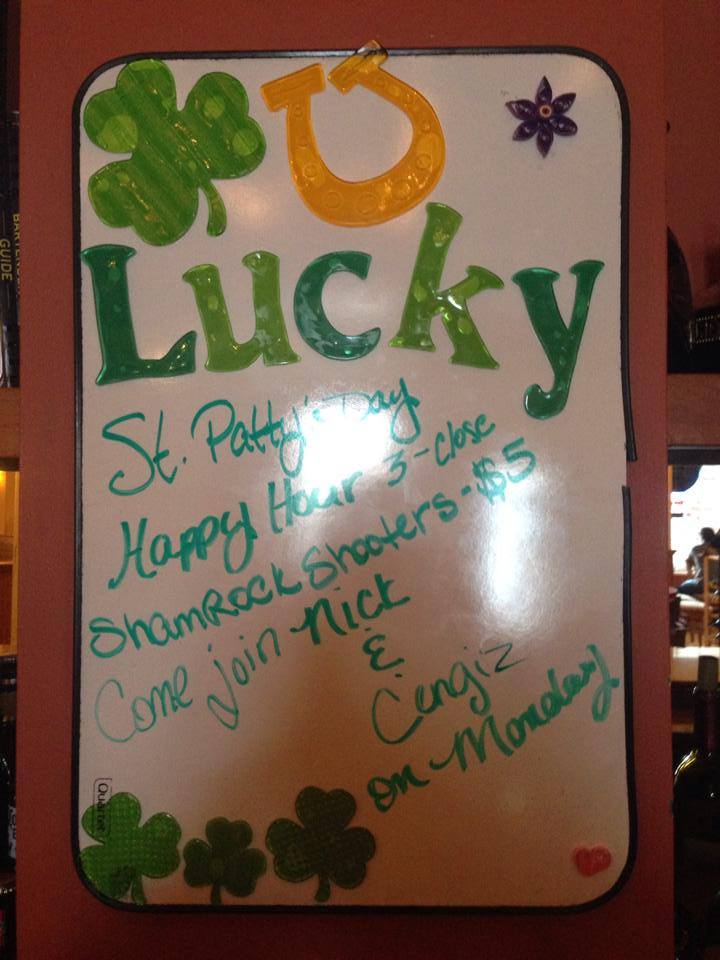 Lucky
St. Patty's Day
Happy Hour 3-close
ShamRock Shooters-$5
Come join Nick
&
Cengiz
on Monday
Quartet
BARTENDER
GUIDE